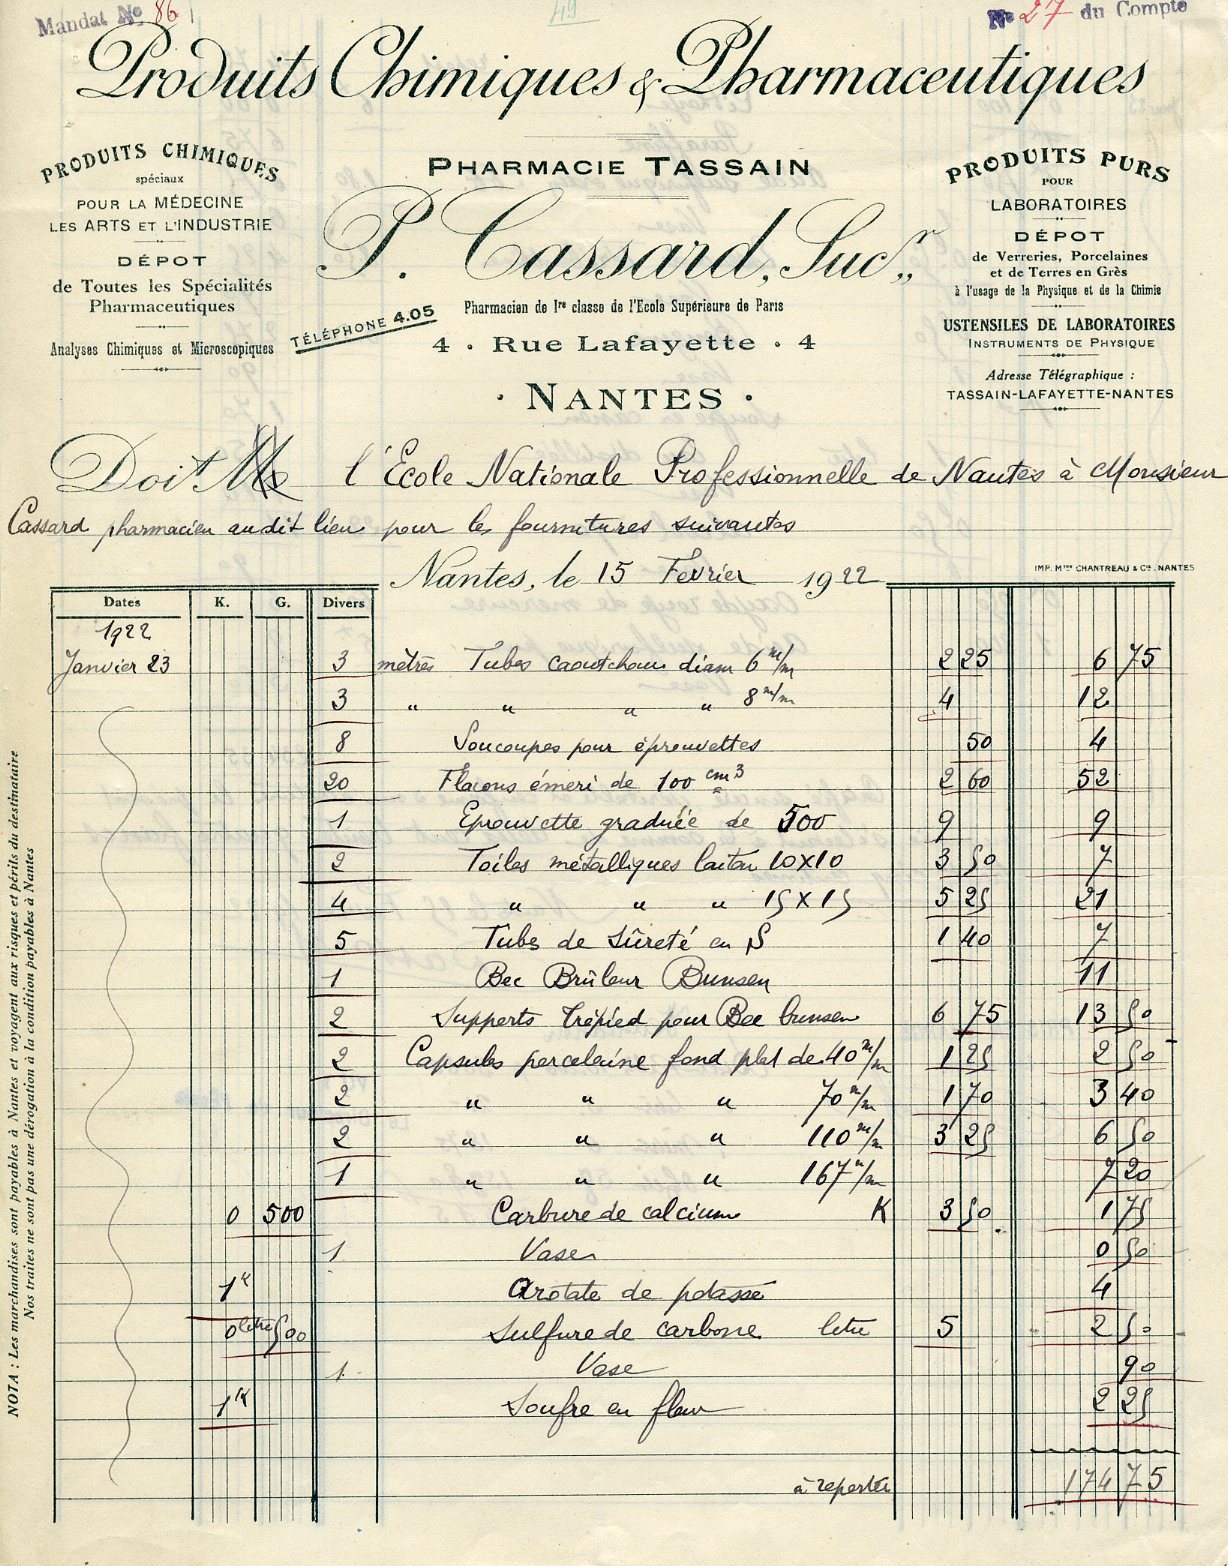 Mandat № 86
49
№ 27 du Compte
Produits Chimiques & Pharmaceutiques
PRODUITS CHIMIQUES
spéciaux
POUR LA MÉDECINE
LES ARTS ET L'INDUSTRIE
DÉPOT
de Toutes les Spécialités
Pharmaceutiques
Analyses Chimiques et Microscopiques
PHARMACIE TASSAIN
P. Cassard, Sucr
Pharmacien de 1re classe de l'Ecole Supérieure de Paris
TÉLÉPHONE 4.05
4 . Rue Lafayette . 4
· NANTES ·
PRODUITS PURS
POUR
LABORATOIRES
DÉPOT
de Verreries, Porcelaines
et de Terres en Grès
à l'usage de la Physique et de la Chimie
USTENSILES DE LABORATOIRES
INSTRUMENTS DE PHYSIQUE
Adresse Télégraphique :
TASSAIN-LAFAYETTE-NANTES
Doit M l'Ecole Nationale Professionnelle de Nantes à Monsieur
Cassard pharmacien audit lieu pour les fournitures suivantes
Nantes, le 15 Février 1922
IMP. Mces CHANTREAU & Cie. NANTES
Dates K. G. Divers
1922
Janvier 23 3 mètres Tubes caoutchouc diam 6 m/m 2 25 6 75
3 " " " " 8 m/m 4 12
8 Soucoupes pour éprouvettes 50 4
20 Flacons émeri de 100 cm3 2 60 52
1 Eprouvette graduée de 500 9 9
2 Toiles métalliques laiton 10x10 3 50 7
4 " " " 15x15 5 25 21
5 Tubes de Sûreté en S 1 40 7
1 Bec Brûleur Bunsen 11
2 Supports trépied pour Bec bunsen 6 75 13 50
2 Capsules porcelaine fond plat de 40 m/m 1 25 2 50
2 " " " 70 m/m 1 70 3 40
2 " " " 110 m/m 3 25 6 50
1 " " " 167 m/m 7 20
0 500 Carbure de calcium K 3 50 1 75
1 Vase 0 50
1K Azotate de potasse 4
0 litre 500 Sulfure de carbone litre 5 2 50
1 Vase 90
1K Soufre en fleur 2 25
à reporter 174 75
NOTA : Les marchandises sont payables à Nantes et voyagent aux risques et périls du destinataire
Nos traites ne sont pas une dérogation à la condition payables à Nantes